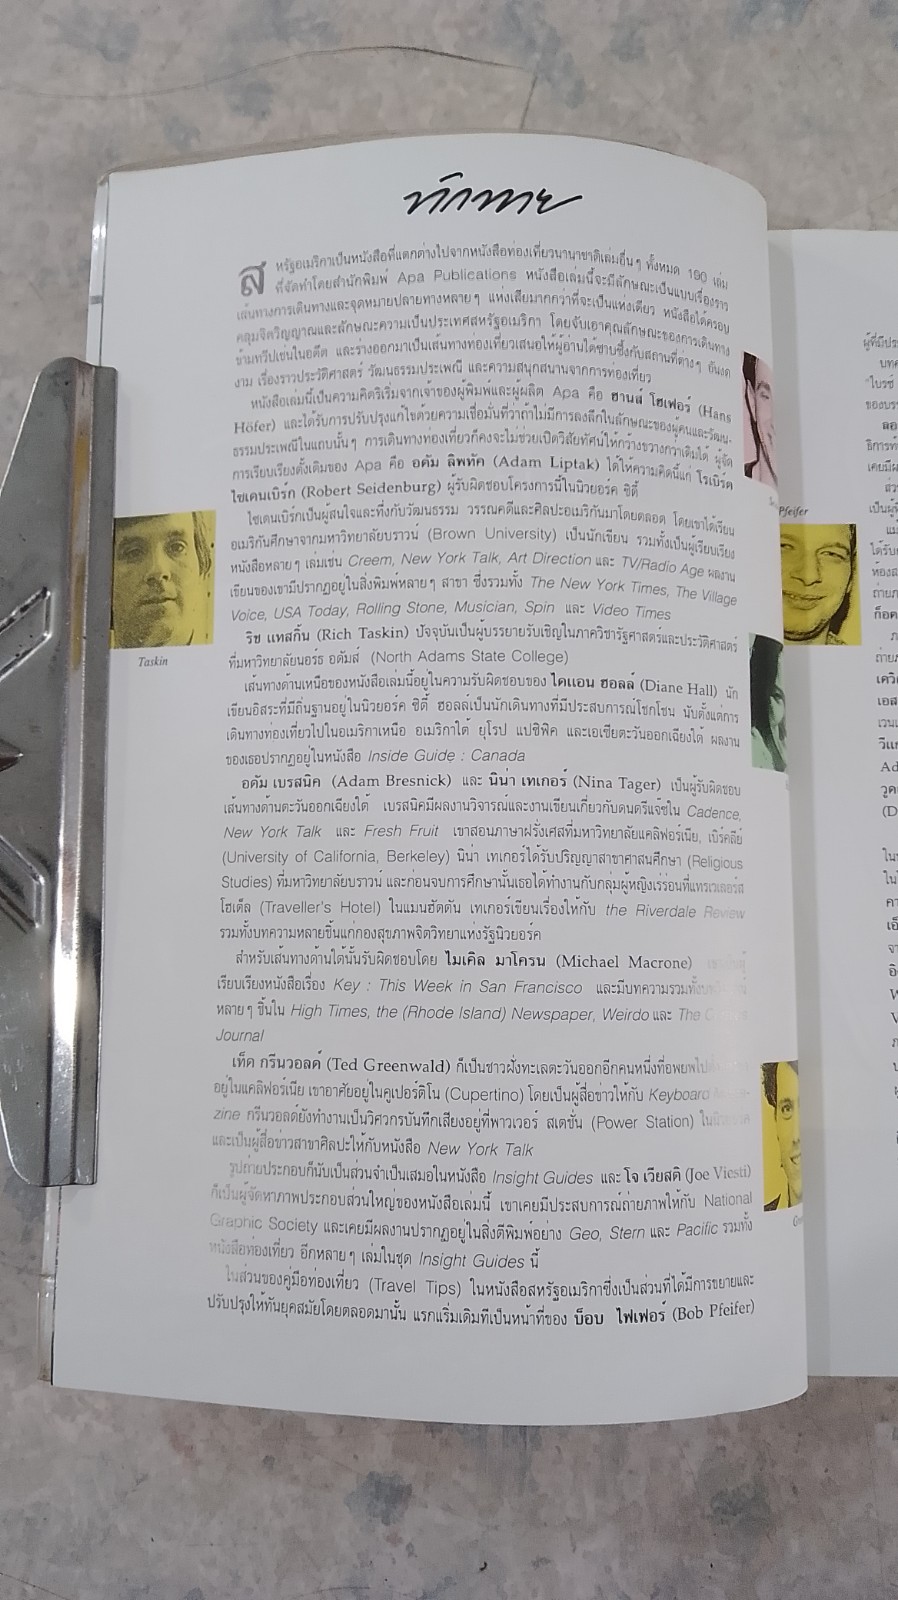 ทักทาย
สหรัฐอเมริกาเป็นหนังสือที่แตกต่างไปจากหนังสือท่องเที่ยวนานาชาติเล่มอื่นๆ ทั้งหมด 190 เล่ม
ที่จัดทำโดยสำนักพิมพ์ Apa Publications หนังสือเล่มนี้จะมีลักษณะเป็นแบบเรื่องราว
เส้นทางการเดินทางและจุดหมายปลายทางหลายๆ แห่งเสียมากกว่าที่จะเป็นแห่งเดียว หนังสือได้ครอบ
คลุมจิตวิญญาณและลักษณะความเป็นประเทศสหรัฐอเมริกา โดยจับเอาคุณลักษณะของการเดินทาง
ข้ามทวีปเช่นในอดีต และร่างออกมาเป็นเส้นทางท่องเที่ยวเสนอให้ผู้อ่านได้ซาบซึ้งกับสถานที่ต่างๆ อันงด
งาม เรื่องราวประวัติศาสตร์ วัฒนธรรมประเพณี และความสนุกสนานจากการท่องเที่ยว
หนังสือเล่มนี้เป็นความคิดริเริ่มจากเจ้าของผู้พิมพ์และผู้ผลิต Apa คือ ฮานส์ โฮเฟอร์ (Hans
Höfer) และได้รับการปรับปรุงแก้ไขด้วยความเชื่อมั่นที่ว่าถ้าไม่มีการลงลึกในลักษณะของผู้คนและวัฒน-
ธรรมประเพณีในแถบนั้นๆ การเดินทางท่องเที่ยวก็คงจะไม่ช่วยเปิดวิสัยทัศน์ให้กว้างขวางกว่าเดิมได้ ผู้จัด
การเรียบเรียงดั้งเดิมของ Apa คือ อดัม ลิพทัค (Adam Liptak) ได้ให้ความคิดนี้แก่ โรเบิร์ต
ไซเดนเบิร์ก (Robert Seidenburg) ผู้รับผิดชอบโครงการนี้ในนิวยอร์ค ซิตี้
ไซเดนเบิร์กเป็นผู้สนใจและทึ่งกับวัฒนธรรม วรรณคดีและศิลปะอเมริกันมาโดยตลอด โดยเขาได้เรียน
อเมริกันศึกษาจากมหาวิทยาลัยบราวน์ (Brown University) เป็นนักเขียน รวมทั้งเป็นผู้เรียบเรียง
หนังสือหลายๆ เล่มเช่น Creem, New York Talk, Art Direction และ TV/Radio Age ผลงาน
เขียนของเขามีปรากฏอยู่ในสิ่งพิมพ์หลายๆ สาขา ซึ่งรวมทั้ง The New York Times, The Village
Voice, USA Today, Rolling Stone, Musician, Spin และ Video Times
ริช แทสกิ้น (Rich Taskin) ปัจจุบันเป็นผู้บรรยายรับเชิญในภาควิชารัฐศาสตร์และประวัติศาสตร์
ที่มหาวิทยาลัยนอร์ธ อดัมส์ (North Adams State College)
Taskin
เส้นทางด้านเหนือของหนังสือเล่มนี้อยู่ในความรับผิดชอบของ ไดแอน ฮอลล์ (Diane Hall) นัก
เขียนอิสระที่มีถิ่นฐานอยู่ในนิวยอร์ค ซิตี้ ฮอลล์เป็นนักเดินทางที่มีประสบการณ์โชกโชน นับตั้งแต่การ
เดินทางท่องเที่ยวไปในอเมริกาเหนือ อเมริกาใต้ ยุโรป แปซิฟิค และเอเชียตะวันออกเฉียงใต้ ผลงาน
ของเธอปรากฏอยู่ในหนังสือ Inside Guide : Canada
อดัม เบรสนิค (Adam Bresnick) และ นิน่า เทเกอร์ (Nina Tager) เป็นผู้รับผิดชอบ
เส้นทางด้านตะวันออกเฉียงใต้ เบรสนิคมีผลงานวิจารณ์และงานเขียนเกี่ยวกับดนตรีแจ๊ซใน Cadence,
New York Talk และ Fresh Fruit เขาสอนภาษาฝรั่งเศสที่มหาวิทยาลัยแคลิฟอร์เนีย, เบิร์คลีย์
(University of California, Berkeley) นิน่า เทเกอร์ได้รับปริญญาสาขาศาสนศึกษา (Religious
Studies) ที่มหาวิทยาลัยบราวน์ และก่อนจบการศึกษานั้นเธอได้ทำงานกับกลุ่มผู้หญิงเร่ร่อนที่แทรเวเลอร์ส
โฮเต็ล (Traveller's Hotel) ในแมนฮัตตัน เทเกอร์เขียนเรื่องให้กับ the Riverdale Review
รวมทั้งบทความหลายชิ้นแก่กองสุขภาพจิตวิทยาแห่งรัฐนิวยอร์ค
สำหรับเส้นทางด้านใต้นั้นรับผิดชอบโดย ไมเคิล มาโครน (Michael Macrone)
เรียบเรียงหนังสือเรื่อง Key : This Week in San Francisco และมีบทความรวมทั้ง
หลายๆ ชิ้นใน High Times, the (Rhode Island) Newspaper, Weirdo และ The
Journal
เท็ด กรีนวอลด์ (Ted Greenwald) ก็เป็นชาวฝั่งทะเลตะวันออกอีกคนหนึ่งที่อพยพไป
อยู่ในแคลิฟอร์เนีย เขาอาศัยอยู่ในคูเปอร์ติโน (Cupertino) โดยเป็นผู้สื่อข่าวให้กับ Keyboard Maga-
zine กรีนวอลด์ยังทำงานเป็นวิศวกรบันทึกเสียงอยู่ที่พาวเวอร์ สเตชั่น (Power Station) ในนิวยอร์ค
และเป็นผู้สื่อข่าวสาขาศิลปะให้กับหนังสือ New York Talk
รูปถ่ายประกอบก็นับเป็นส่วนจำเป็นเสมอในหนังสือ Insight Guides และ โจ เวียสติ (Joe Viesti)
ก็เป็นผู้จัดหาภาพประกอบส่วนใหญ่ของหนังสือเล่มนี้ เขาเคยมีประสบการณ์ถ่ายภาพให้กับ National
Graphic Society และเคยมีผลงานปรากฏอยู่ในสิ่งตีพิมพ์อย่าง Geo, Stern และ Pacific รวมทั้ง
หนังสือท่องเที่ยว อีกหลายๆ เล่มในชุด Insight Guides นี้
ในส่วนของคู่มือท่องเที่ยว (Travel Tips) ในหนังสือสหรัฐอเมริกาซึ่งเป็นส่วนที่ได้มีการขยายและ
ปรับปรุงให้ทันยุคสมัยโดยตลอดมานั้น แรกเริ่มเดิมทีเป็นหน้าที่ของ บ็อบ ไฟเฟอร์ (Bob Pfeifer)
Pfeifer